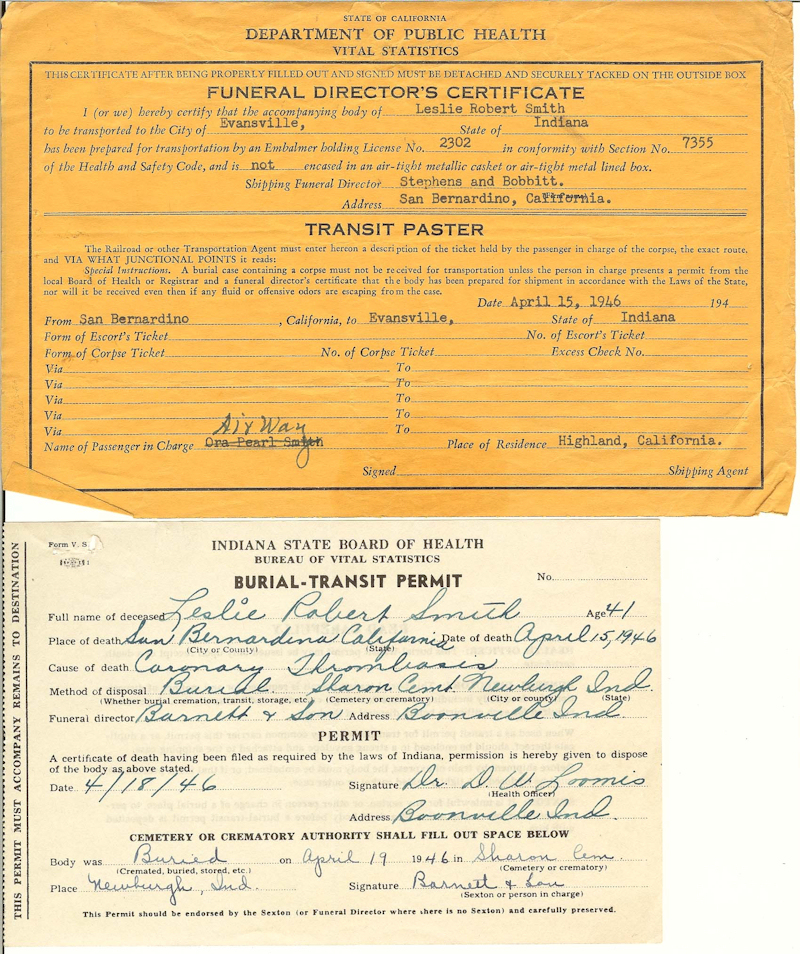 STATE OF CALIFORNIA
DEPARTMENT OF PUBLIC HEALTH
VITAL STATISTICS
THIS CERTIFICATE AFTER BEING PROPERLY FILLED OUT AND SIGNED MUST BE DETACHED AND SECURELY TACKED ON THE OUTSIDE BOX
FUNERAL DIRECTOR'S CERTIFICATE
I (or we) hereby certify that the accompanying body of Leslie Robert Smith
to be transported to the City of Evansville, State of Indiana
has been prepared for transportation by an Embalmer holding License No. 2302 in conformity with Section No. 7355
of the Health and Safety Code, and is not encased in an air-tight metallic casket or air-tight metal lined box.
Shipping Funeral Director Stephens and Bobbitt.
Address San Bernardino, California.
TRANSIT PASTER
The Railroad or other Transportation Agent must enter hereon a description of the ticket held by the passenger in charge of the corpse, the exact route,
and VIA WHAT JUNCTIONAL POINTS it reads:
Special Instructions. A burial case containing a corpse must not be received for transportation unless the person in charge presents a permit from the
local Board of Health or Registrar and a funeral director's certificate that the body has been prepared for shipment in accordance with the Laws of the State,
nor will it be received even then if any fluid or offensive odors are escaping from the case.
Date April 15, 1946 194
From San Bernardino, California, to Evansville, State of Indiana
Form of Escort's Ticket No. of Escort's Ticket
Form of Corpse Ticket No. of Corpse Ticket Excess Check No.
Via To
Via To
Via To
Via To
Via To
Air Way
Name of Passenger in Charge Ora Pearl Smith Place of Residence Highland, California.
Signed Shipping Agent
THIS PERMIT MUST ACCOMPANY REMAINS TO DESTINATION
Form V. S.
INDIANA STATE BOARD OF HEALTH
BUREAU OF VITAL STATISTICS
BURIAL-TRANSIT PERMIT No.
Full name of deceased Leslie Robert Smith Age 41
Place of death San Bernardina California Date of death April 15, 1946
(City or County) (State)
Cause of death Coronary Thrombosis
Method of disposal Burial Sharon Cemt. Newburgh Ind.
(Whether burial cremation, transit, storage, etc.) (Cemetery or crematory) (City or county) (State)
Funeral director Barnett & Son Address Boonville Ind
PERMIT
A certificate of death having been filed as required by the laws of Indiana, permission is hereby given to dispose
of the body as above stated.
Date 4/18/46 Signature Dr. D. W. Loomis
(Health Officer)
Address Boonville Ind.
CEMETERY OR CREMATORY AUTHORITY SHALL FILL OUT SPACE BELOW
Body was Buried on April 19 1946 in Sharon Cem.
(Cremated, buried, stored, etc.) (Cemetery or crematory)
Place Newburgh, Ind. Signature Barnett & Son
(Sexton or person in charge)
This Permit should be endorsed by the Sexton (or Funeral Director where there is no Sexton) and carefully preserved.